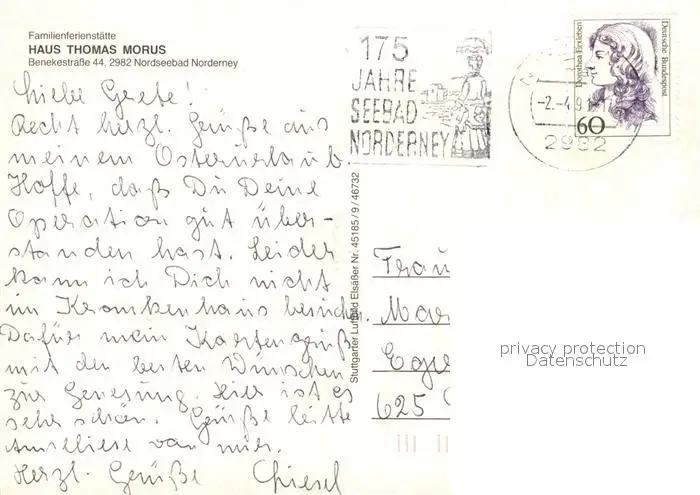 Familienferienstätte
HAUS THOMAS MORUS
Benekestraße 44, 2982 Nordseebad Norderney
Liebe Grete!
Recht herzl. Grüße aus
meinem Osterurlaub.
Hoffe, daß Du Deine
Operation gut über-
standen hast. Leider
kann ich Dich nicht
im Krankenhaus besuchen.
Dafür mein Kartengruß
mit den besten Wünschen
zur Genesung. Hier ist es
sehr schön. Grüße bitte
Anneliese von mir.
Herzl. Grüße
175
JAHRE
SEEBAD
NORDERNEY
-2.-4.9
2982
Dorothea Erxleben
Deutsche Bundespost
60
Stuttgarter Luftbild Elsäßer Nr. 45185/9/46732
Frau
Mar
625
privacy protection
Datenschutz